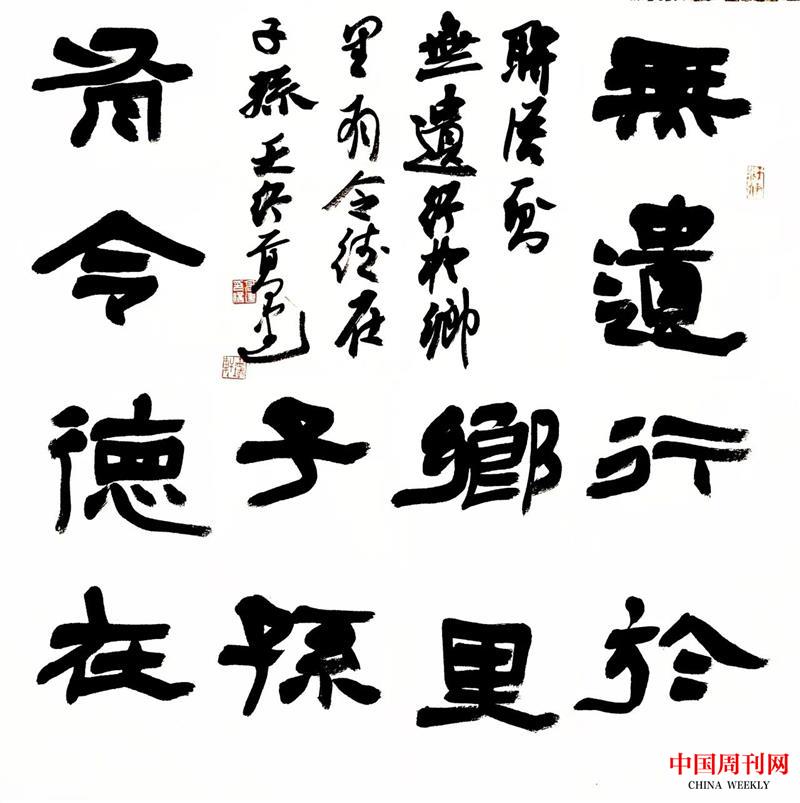 無遺行於
鄉里
有令德在
子孫
聯語為
無遺行於鄉
里有令德在
子孫王
中国周刊网
CHINA WEEKLY